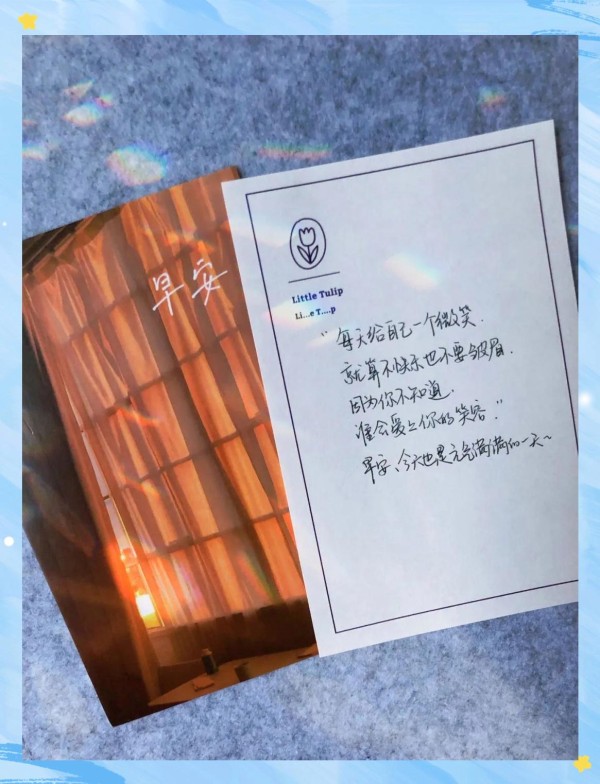 早安
Little Tulip
Li...e T....p
“每天给自己一个微笑.
就算不快乐也不要皱眉.
因为你不知道.
谁会爱上你的笑容.”
早安、今天也是元气满满的一天~